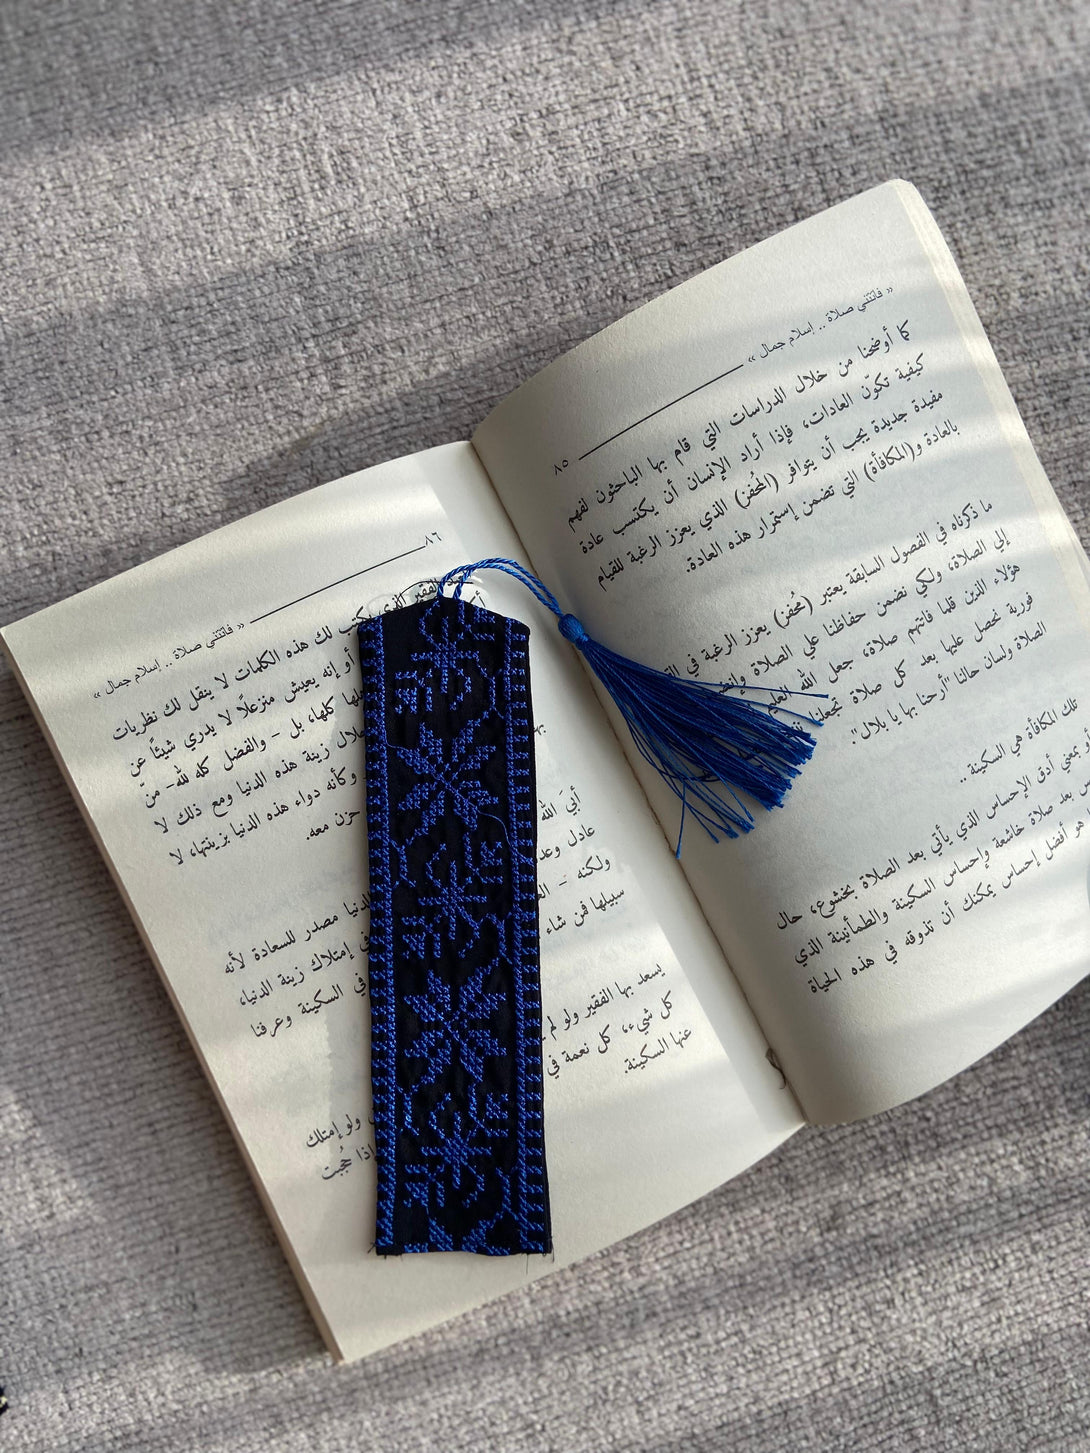 « فاتتني صلاة .. إسلام جمال »
٨٥
كما أوضحنا من خلال الدراسات التي قام بها الباحثون لفهم
كيفية تكوّن العادات، فإذا أراد الإنسان أن يكتسب عادة
مفيدة جديدة يجب أن يتوافر (المُحفز) الذي يعزز الرغبة للقيام
بالعادة و(المكافأة) التي تضمن إستمرار هذه العادة.
ما ذكرناه في الفصول السابقة يعتبر (مُحفز) يعزز الرغبة في
إلى الصلاة، ولكي نضمن حفاظنا علي الصلاة
هؤلاء الذين قلما فاتتهم صلاة، جعل الله
فورية نحصل عليها بعد كل صلاة تجعلنا
الصلاة ولسان حالنا "أرحنا بها يا بلال".
تلك المكافأة هي السكينة..
بمعني أدق الإحساس الذي يأتي بعد الصلاة بخشوع، حال
بعد صلاة خاشعة وإحساس السكينة والطمأنينة الذي
هو أفضل إحساس يمكنك أن تتذوقه في هذه الحياة
٨٦
« فاتتني صلاة .. إسلام جمال »
الفقير الذي يكتب لك هذه الكلمات لا ينقل لك نظريات
أو إنه يعيش منعزلاً لا يدري شيئاً عن
كلها، بل - والفضل كله لله- من
زينة هذه الدنيا ومع ذلك لا
وكأنه دواء هذه الدنيا بزينتها، لا
حزن معه.
أبَى الله
عادل
ولكنه -
سبيلها فمن شاء
الدنيا مصدر للسعادة لأنه
في إمتلاك زينة الدنيا،
في السكينة وعرفنا
يسعد بها الفقير ولو لم
كل شيء، كل نعمة في
عنها السكينة.
ولو إمتلك
إذا حُجبت